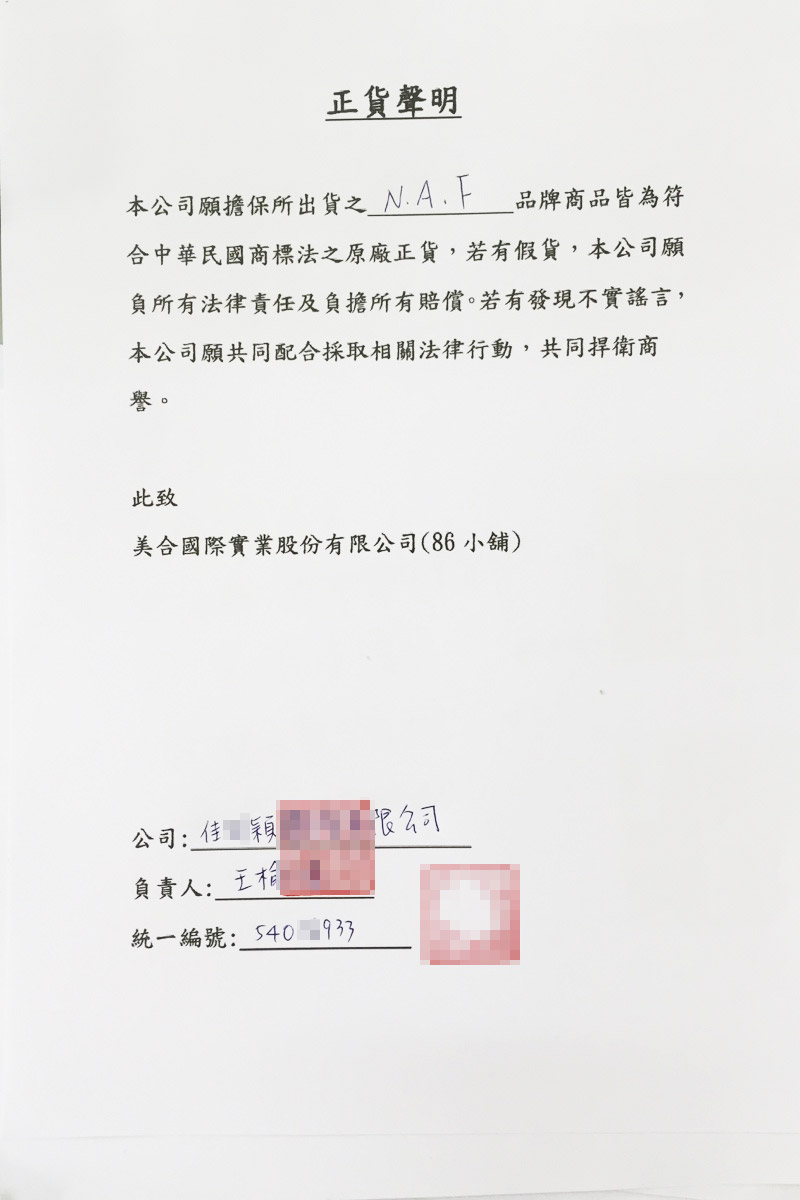 正貨聲明
本公司願擔保所出貨之 N.A.F 品牌商品皆為符
合中華民國商標法之原廠正貨，若有假貨，本公司願
負所有法律責任及負擔所有賠償。若有發現不實謠言，
本公司願共同配合採取相關法律行動，共同捍衛商
譽。
此致
美合國際實業股份有限公司(86 小舖)
公司: 佳 穎 限公司
負責人: 王
統一編號: 540 933